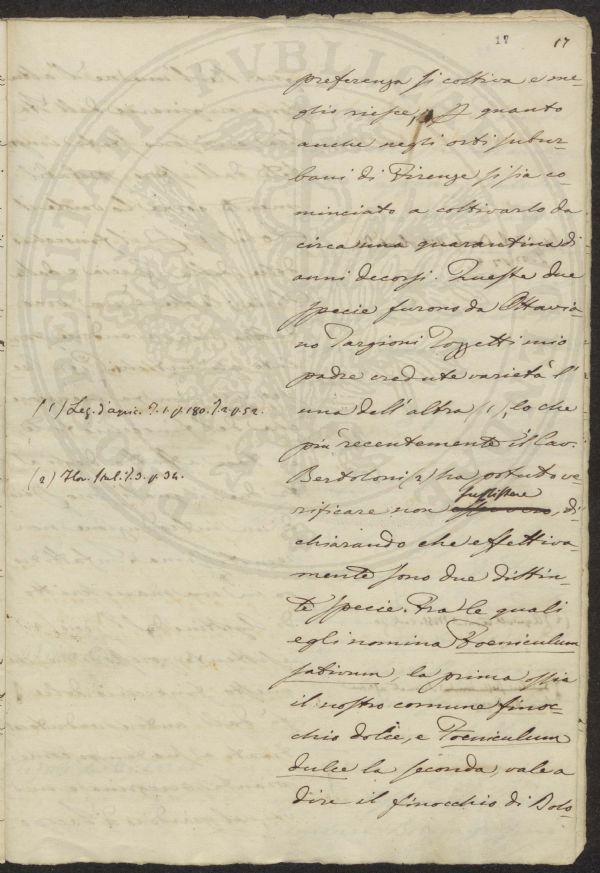 17 17
preferenza si coltiva e me-
glio riesce, quanto
anche negli orti subur-
bani di Firenze si sia co-
minciato a coltivarlo da
circa una quarantina di
anni decorsi. Queste due
specie furono da Ottavia-
no Targioni Tozzetti mio
padre credute varietà l'
una dell'altra (1), lo che
(1) Lez. d'agric. T. 1. p. 180. T. 2. p. 52.
più recentemente il Cav.
Bertoloni (2) ha potuto ve-
(2) Flor. Ital. T. 3. p. 34.
sussistere
rificare non essere vero, di-
chiarando che effettiva-
mente sono due distin-
te specie. Tra le quali
egli nomina Foeniculum
sativum, la prima ossia
il nostro comune finoc-
chio dolce, e Foeniculum
dulce la seconda, vale a
dire il finocchio di Bolo-